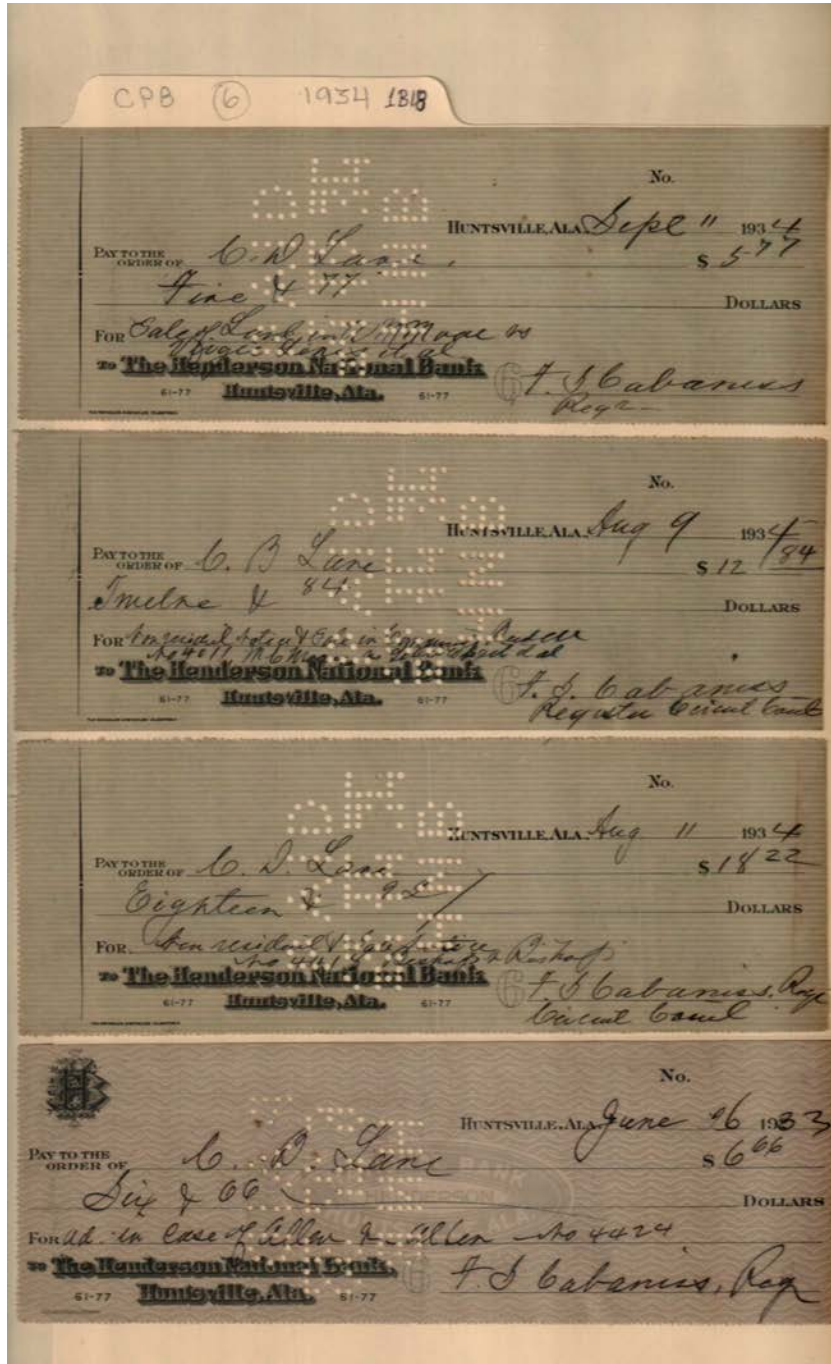 CPB 6 1934 1818
No.
HUNTSVILLE, ALA. Sept 11 1934
PAY TO THE ORDER OF C. D. Lane. $ 5 77
Five & 77 DOLLARS
FOR Sale of Land in vs
et al
TO The Henderson National Bank
61-77 Huntsville, Ala. 61-77
F. S. Cabaniss
Regr
No.
HUNTSVILLE, ALA. Aug 9 1934
PAY TO THE ORDER OF C. B Lane $ 12 84
Twelve & 84 DOLLARS
FOR Non resident Notice & Sale in
No 4011 et al
TO The Henderson National Bank
61-77 Huntsville, Ala. 61-77
F. S. Cabaniss
Register Circuit Court
No.
HUNTSVILLE, ALA. Aug 11 1934
PAY TO THE ORDER OF C. D. Lane $ 18 22
Eighteen & 22 DOLLARS
FOR Non resident & Sale Notice
No Bishop vs Bishop
TO The Henderson National Bank
61-77 Huntsville, Ala. 61-77
F. S Cabaniss. Reg
Circuit Court
No.
HUNTSVILLE, ALA. June 26 1933
PAY TO THE ORDER OF C. D. Lane $ 6 66
Six & 66 DOLLARS
FOR ad. in Case of Allen vs Allen No 4424
TO The Henderson National Bank,
61-77 Huntsville, Ala. 61-77
F. S Cabaniss, Reg